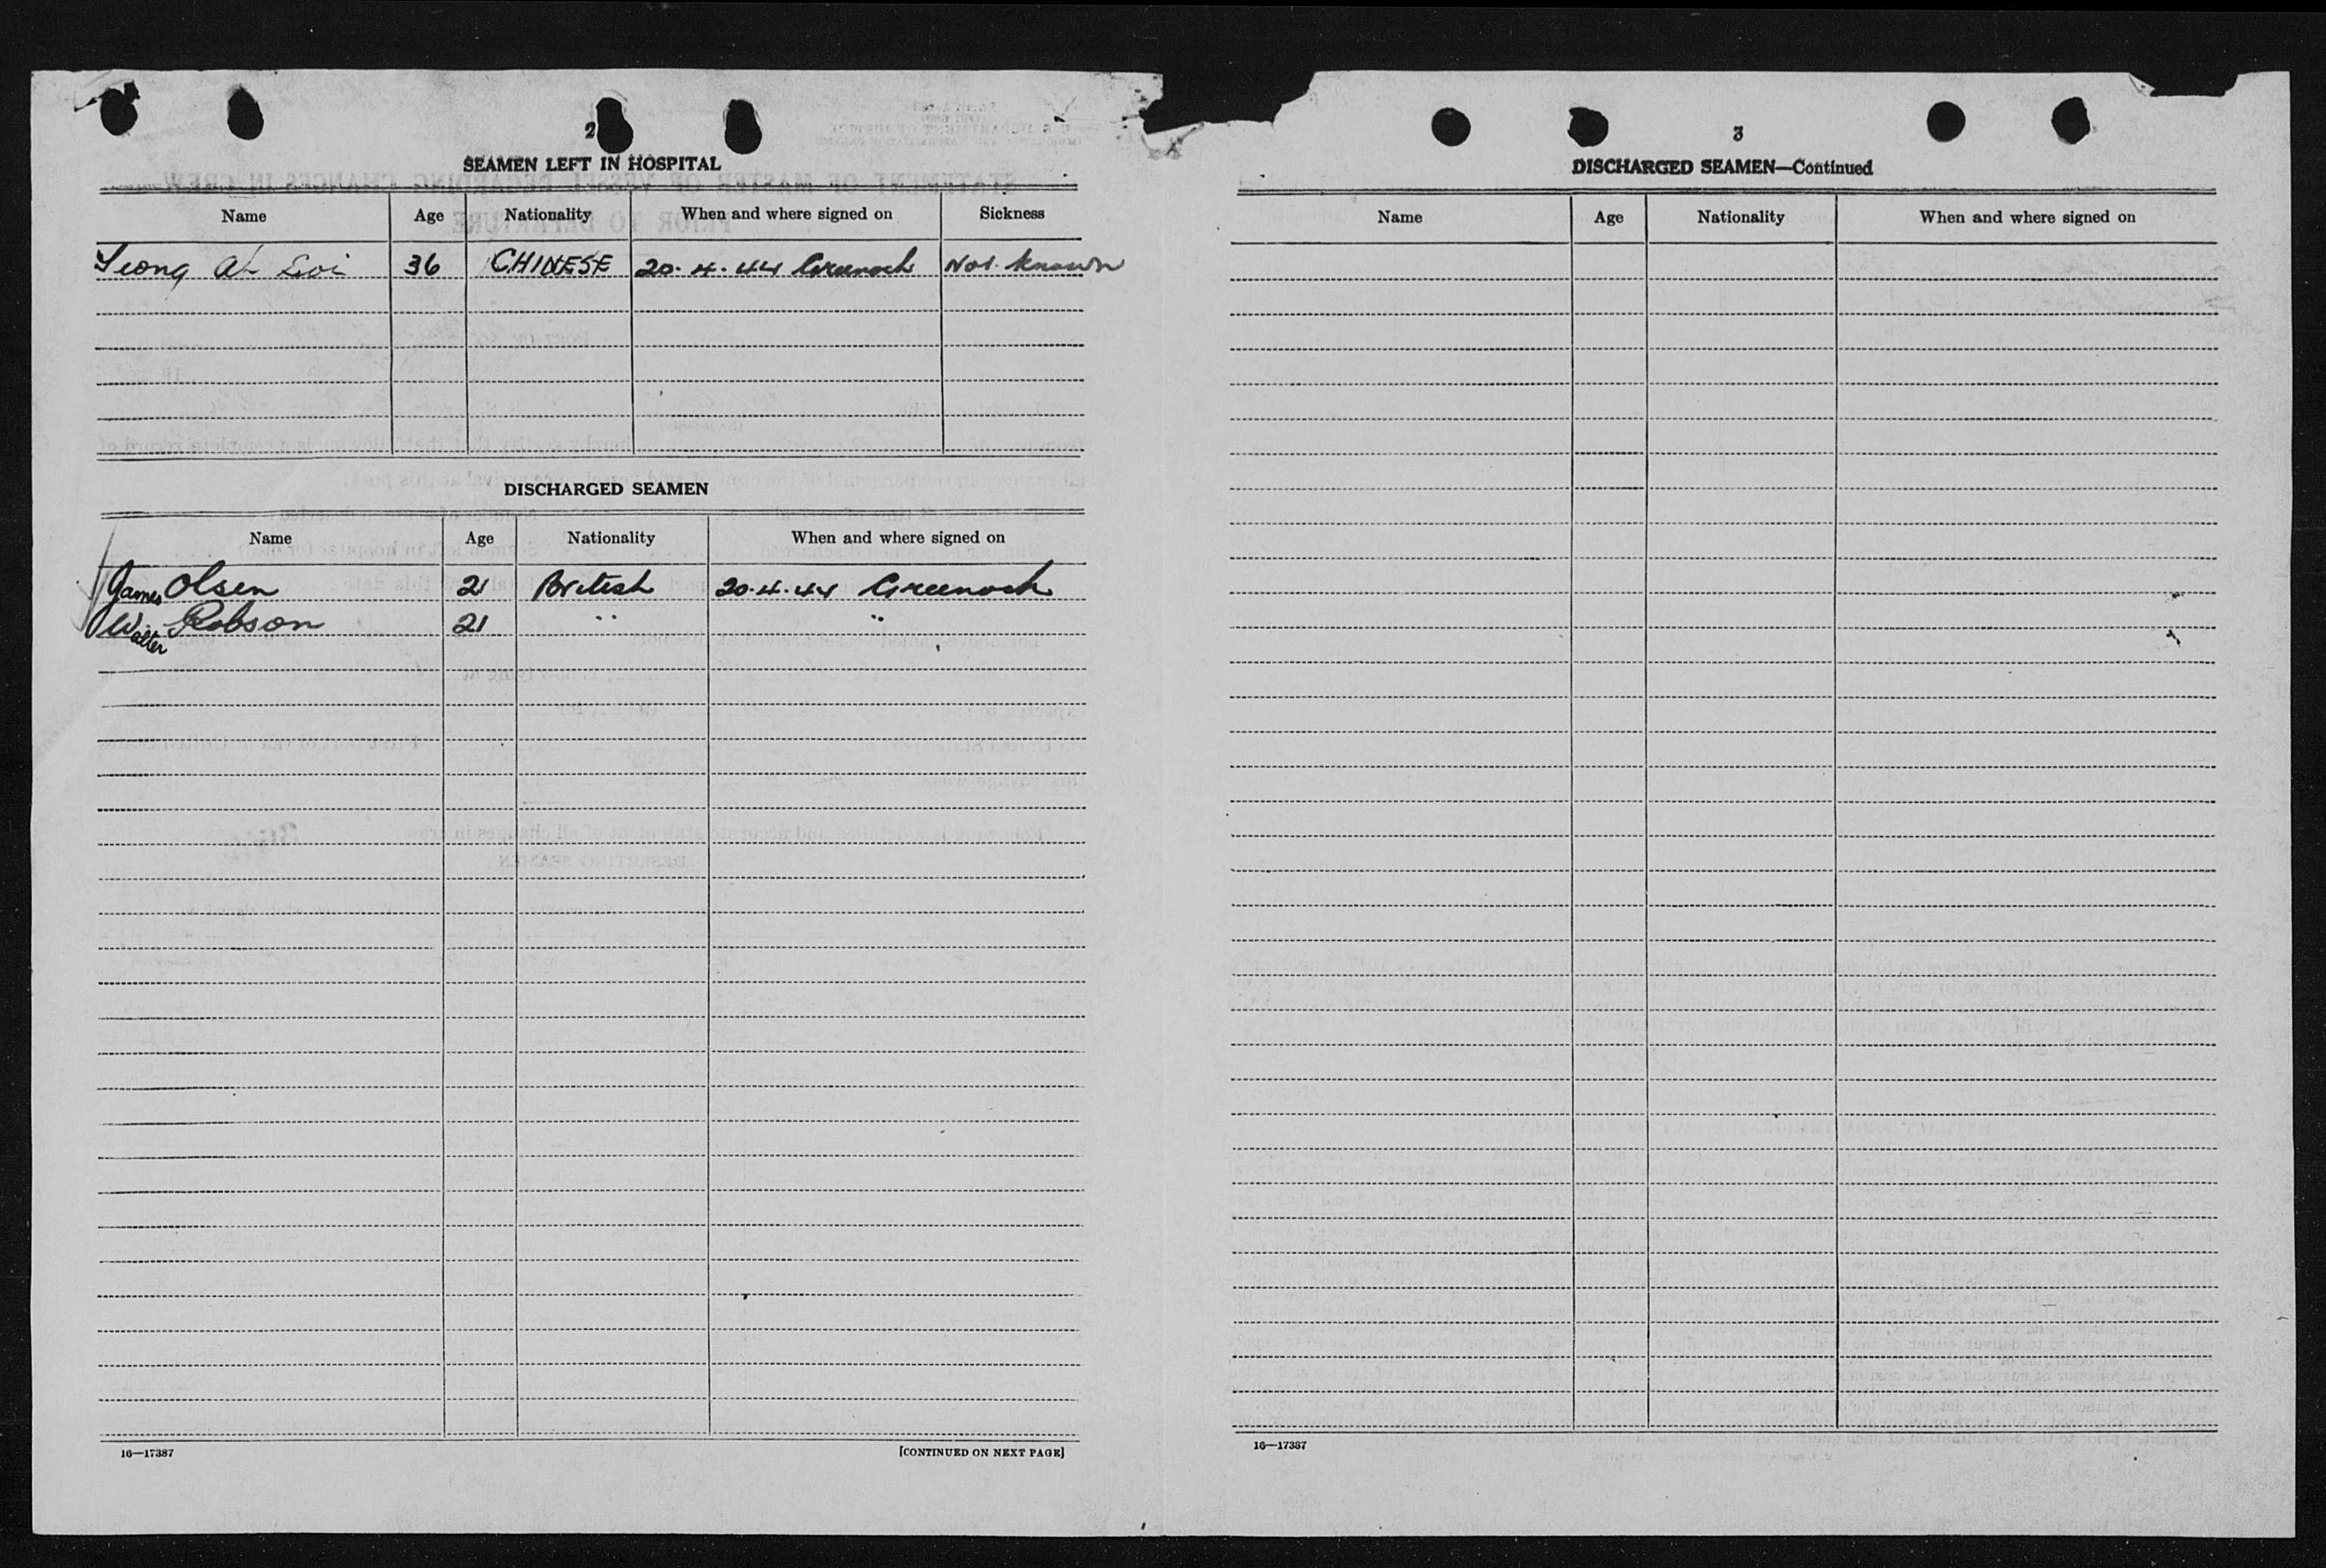 2
SEAMEN LEFT IN HOSPITAL
Name Age Nationality When and where signed on Sickness
Leong Ah Soi 36 CHINESE 20.4.44 Greenock Not known
DISCHARGED SEAMEN
Name Age Nationality When and where signed on
James Olsen 21 British 20.4.44 Greenock
Walter Robson 21 " "
16—17387 [CONTINUED ON NEXT PAGE]
3
DISCHARGED SEAMEN—Continued
Name Age Nationality When and where signed on
16—17387